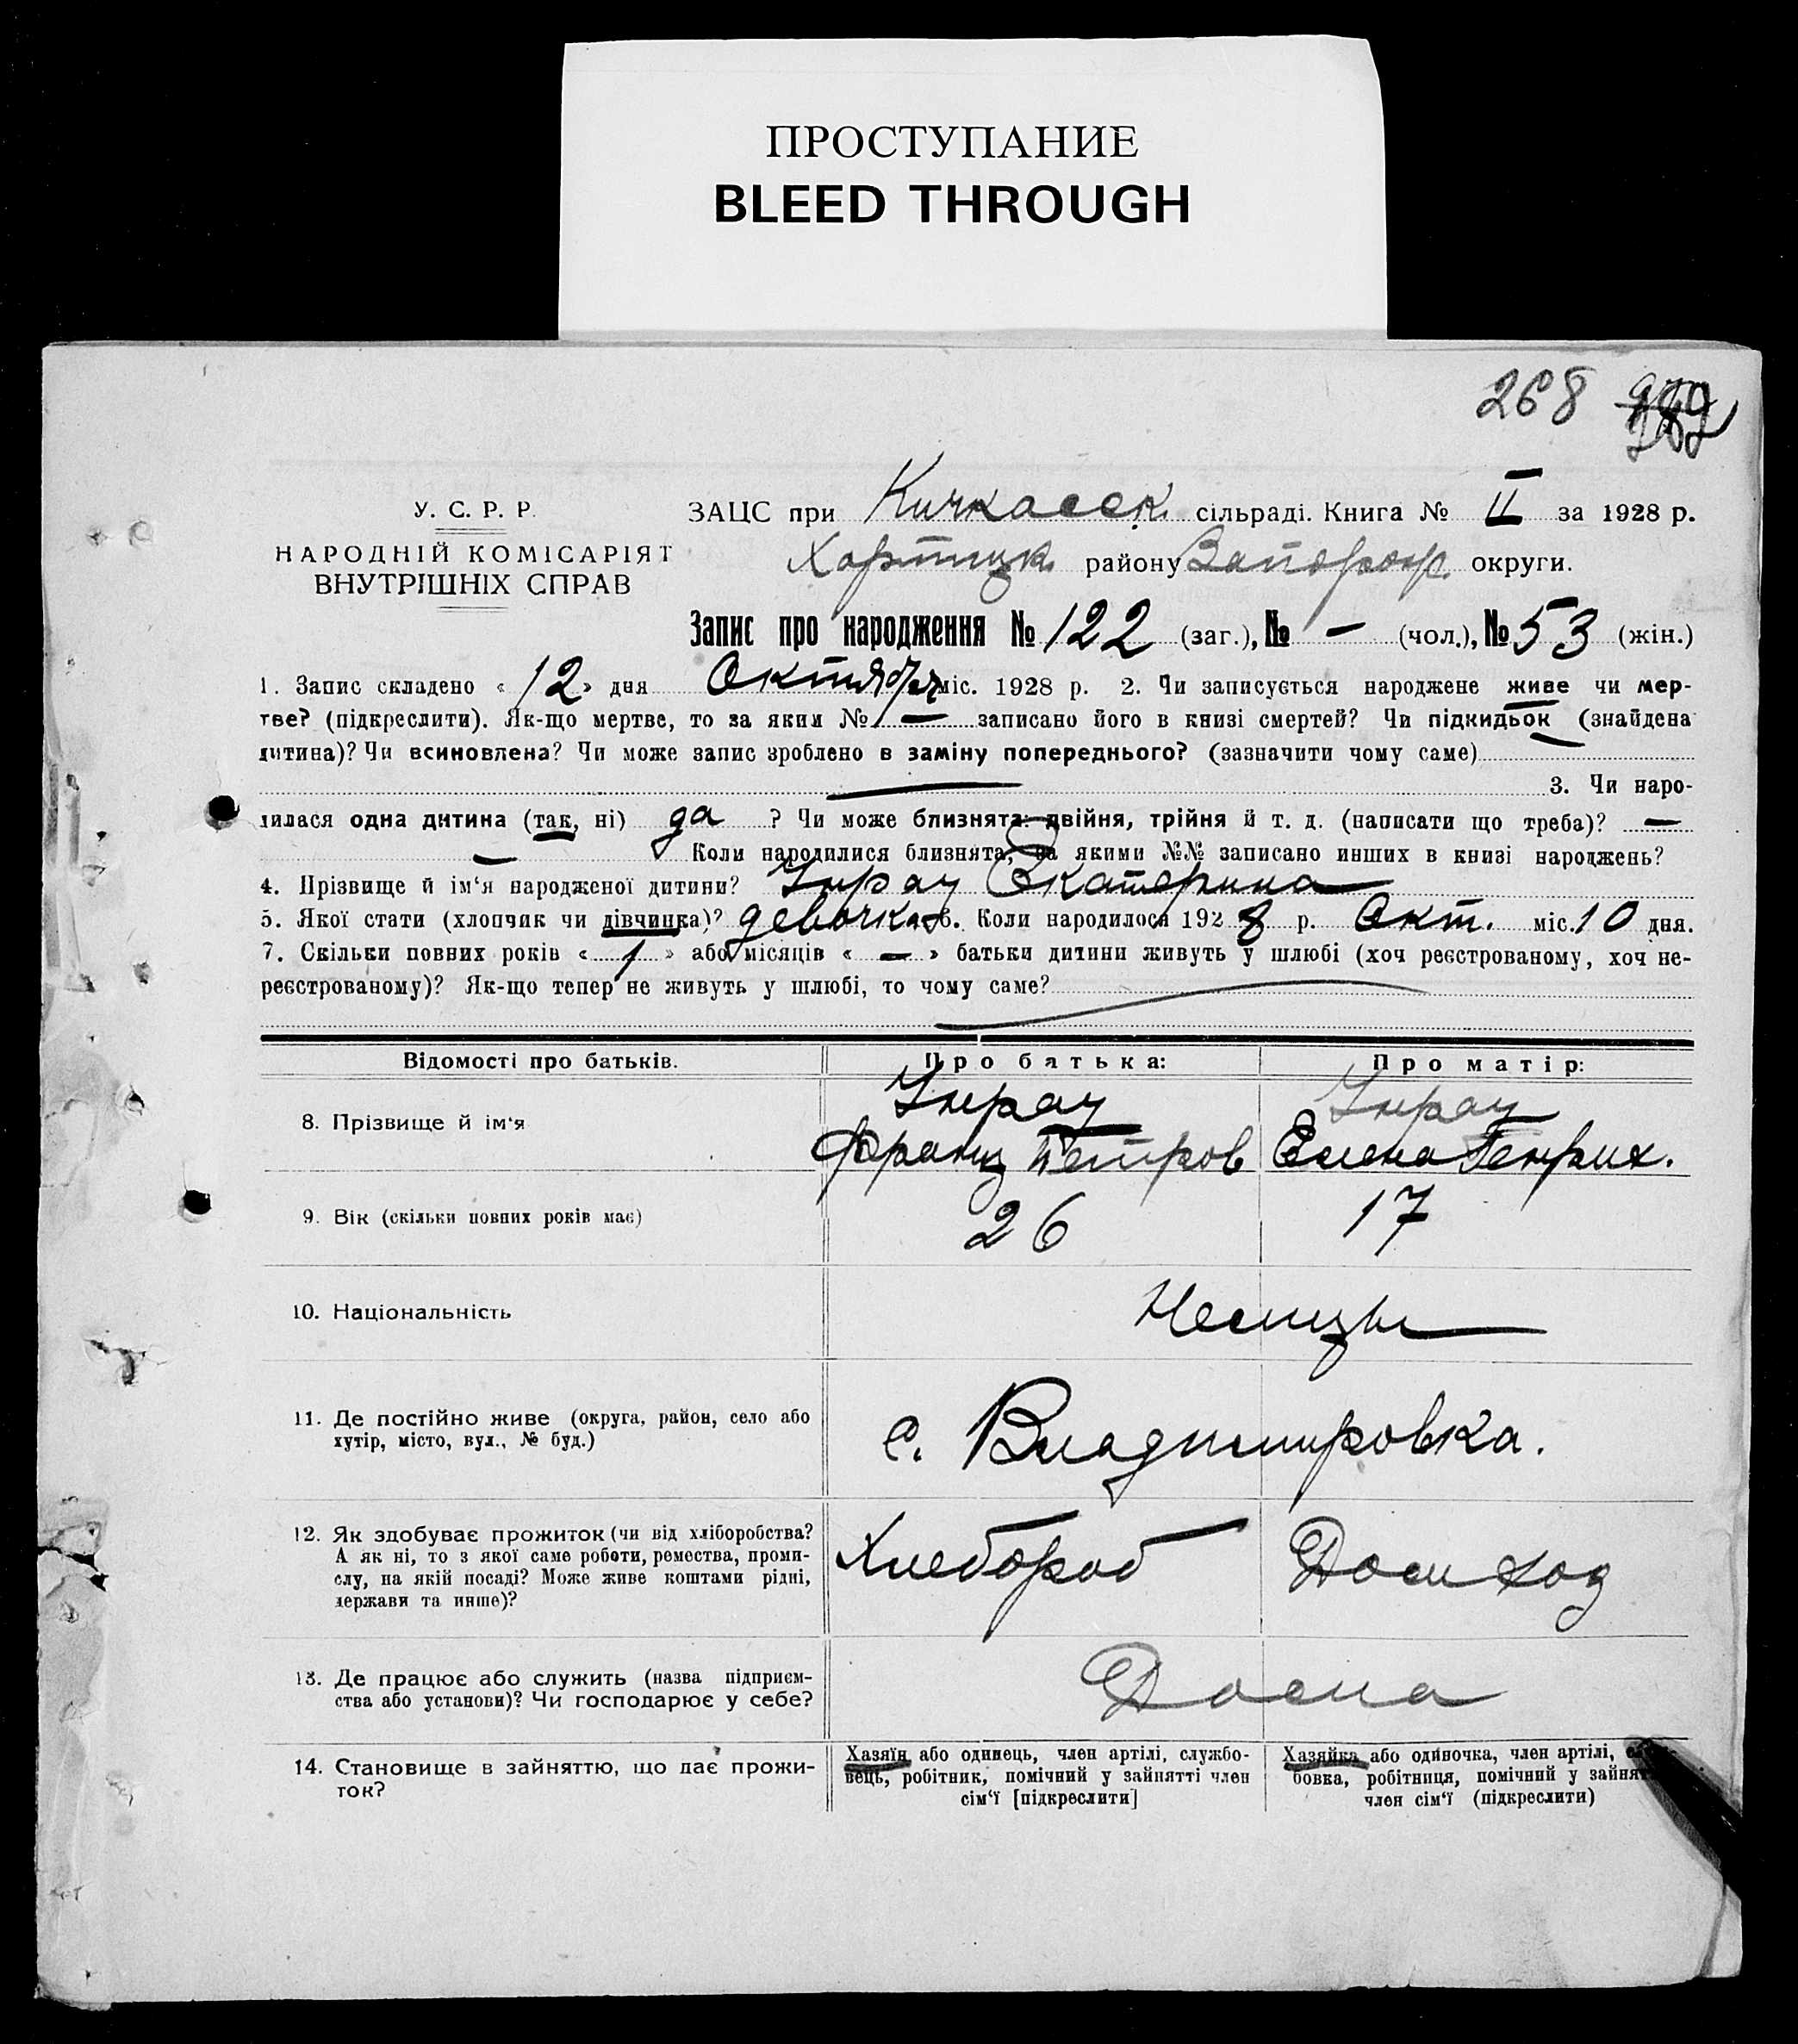 ПРОСТУПАНИЕ
BLEED THROUGH
268
У. С. Р. Р.
НАРОДНІЙ КОМІСАРІЯТ
ВНУТРІШНІХ СПРАВ
ЗАЦС при Кичкасск. сільраді. Книга № II за 1928 р.
Хортицк. району Запорож. округи.
Запис про народження № 122 (заг.), № — (чол.), № 53 (жін.)
1. Запис складено « 12 » дня Октября міс. 1928 р. 2. Чи записується народжене живе чи мер-
тве? (підкреслити). Як-що мертве, то за яким № — записано його в книзі смертей? Чи підкидьок (знайдена
дитина)? Чи всиновлена? Чи може запис зроблено в заміну попереднього? (зазначити чому саме)
3. Чи наро-
дилася одна дитина (так, ні) да ? Чи може близнята: двійня, трійня й т. д. (написати що треба)? —
— Коли народилися близнята, за якими №№ записано инших в книзі народжень?
4. Прізвище й ім‘я народженої дитини? Унрау Екатерина
5. Якої стати (хлопчик чи дівчинка)? девочка 6. Коли народилося 1928 р. Окт. міс. 10 дня.
7. Скільки повних років « 1 » або місяців « — » батьки дитини живуть у шлюбі (хоч реєстрованому, хоч не-
реєстрованому)? Як-що тепер не живуть у шлюбі, то чому саме?
Відомості про батьків. Про батька: Про матір:
8. Прізвище й ім‘я Унрау Франц Петров Унрау Елена Генрих.
9. Вік (скільки повних років має) 26 17
10. Національність Немцы
11. Де постійно живе (округа, район, село або
хутір, місто, вул., № буд.) с. Владимировка.
12. Як здобуває прожиток (чи від хліборобства?
А як ні, то з якої саме роботи, ремества, проми-
слу, на якій посаді? Може живе коштами рідні,
держави та инше)? Хлебороб Домхоз
13. Де працює або служить (назва підприєм-
ства або установи)? Чи господарює у себе? Дома
14. Становище в зайняттю, що дає прожи-
ток?
Хазяїн або одинець, член артілі, службо-
вець, робітник, помічний у зайнятті член
сім‘ї [підкреслити]
Хазяйка або одиночка, член артілі,
бовка, робітниця, помічний у
член сім‘ї (підкреслити)